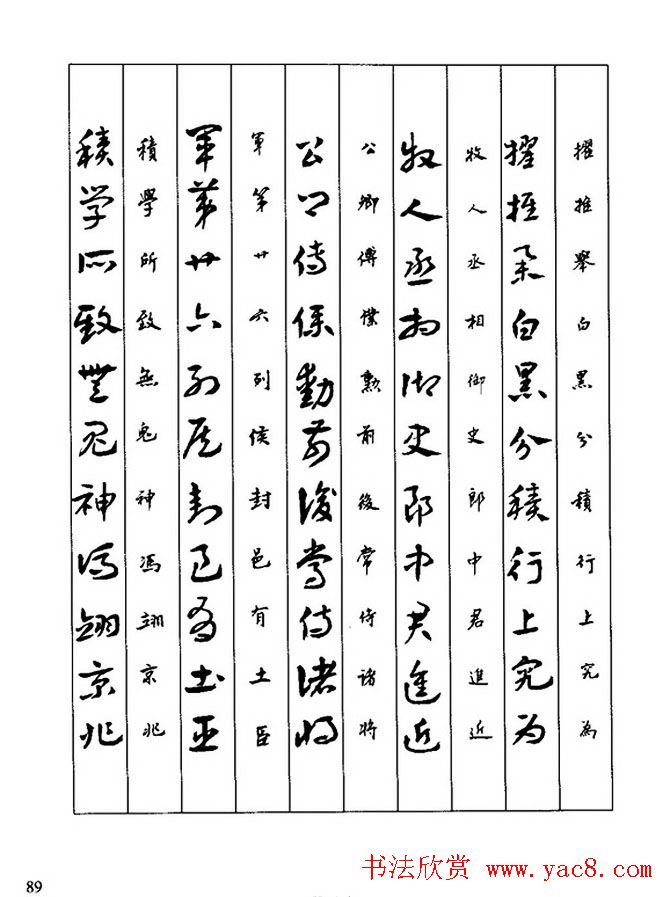 擢推舉白黑分積行上究為
擢推舉白黑分積行上究為
牧人丞相御史郎中君進近
牧人丞相御史郎中君進近
公卿傅僕勳前後常侍諸將
公卿傅僕勳前後常侍諸將
軍第廿六列侯封邑有土臣
軍第廿六列侯封邑有土臣
積學所致無鬼神馮翊京兆
積學所致無鬼神馮翊京兆
书法欣赏 www.yac8.com
89